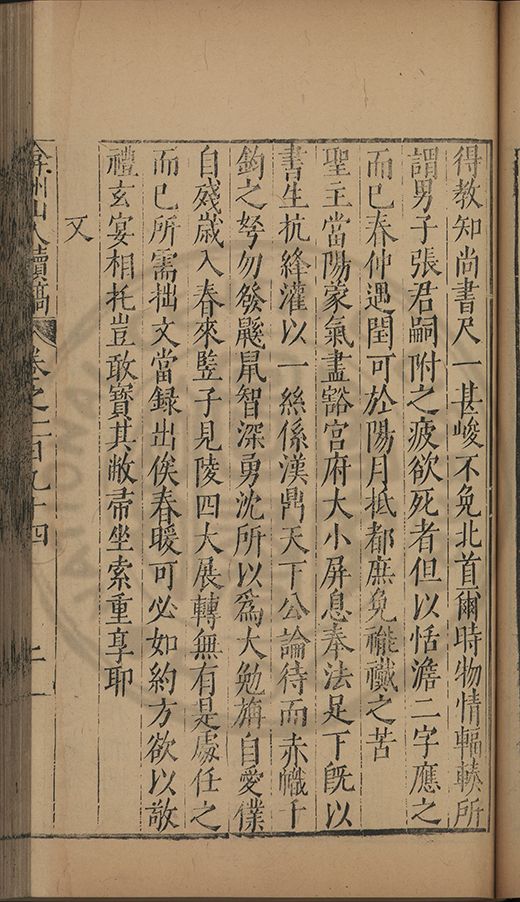 得教知尚書尺一甚峻不免北首爾時物情輻輳所
謂男子張君嗣附之疲欲死者但以恬澹二字應之
而已春仲遇閏可於陽月抵都庶免襶之苦
聖主當陽蒙氣盡豁宮府大小屏息奉法足下旣以
書生抗絳灌以一絲係漢鼎天下公論待而赤幟千
鈞之弩勿發鼷鼠智深勇沈所以爲大勉旃自愛僕
自殘歲入春來竪子見陵四大展轉無有是處任之
而已所需拙文當録出俟春暖可必如約方欲以敬
禮玄宴相托豈敢寶其敝帚坐索重享耶
又
弇州山人續稿 卷之一百九十四